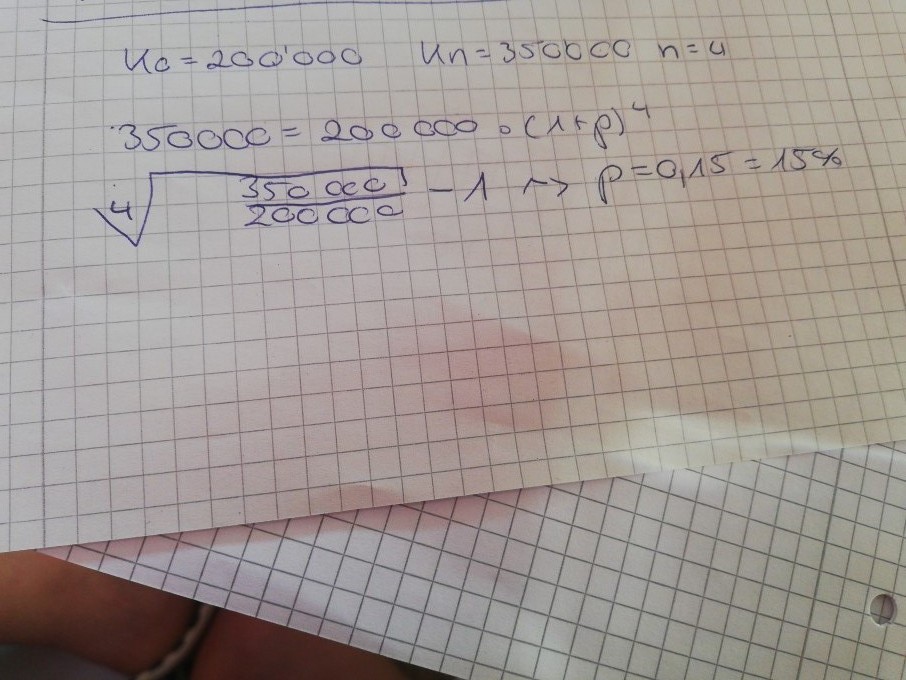 K0 = 200'000 Kn = 350000 n = 4
350000 = 200 000 • (1+p)^4
4√(350 000 / 200 000) - 1 ~> p = 0,15 = 15%